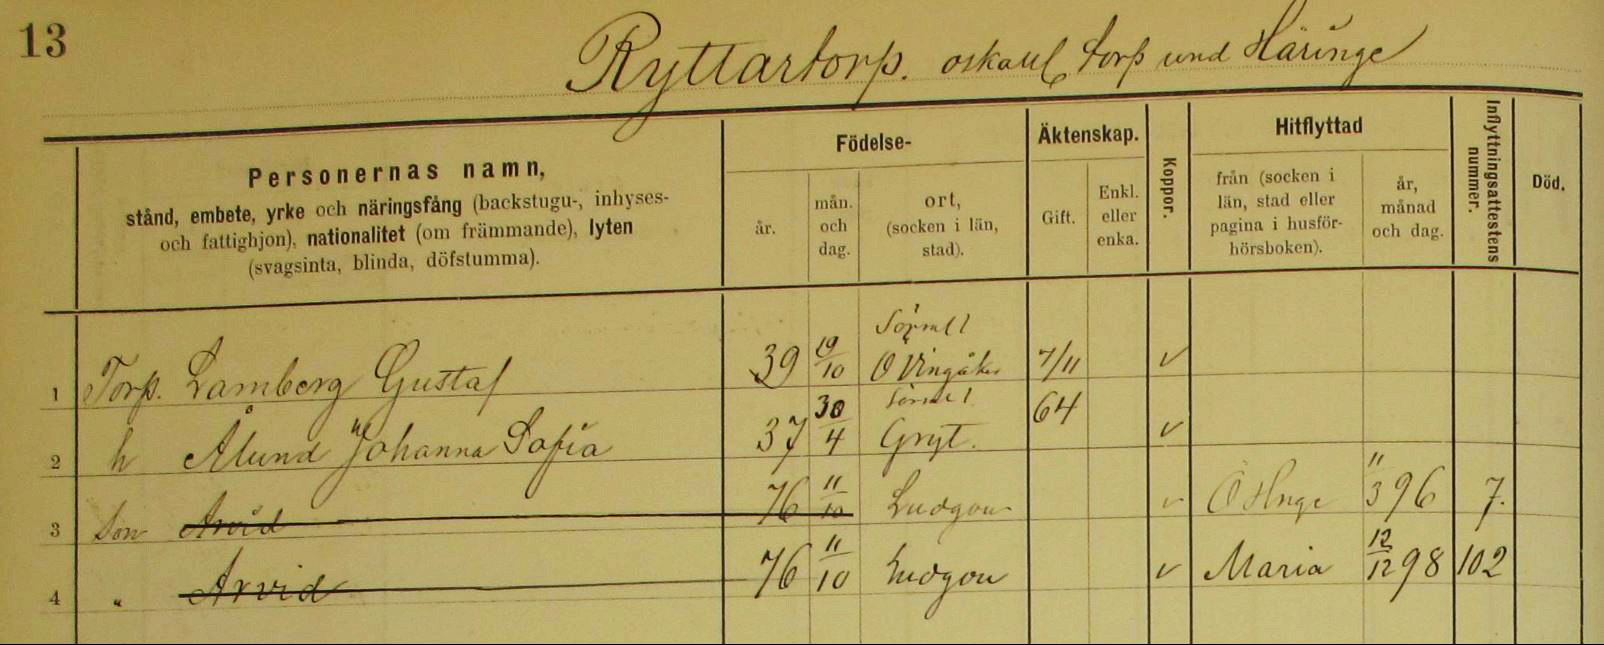 13
Ryttartorp. oskattl torp und Häringe
Personernas namn,
stånd, embete, yrke och näringsfång (backstugu-, inhyses-
och fattighjon), nationalitet (om främmande), lyten
(svagsinta, blinda, döfstumma).
Födelse-
år.
mån.
och
dag.
ort,
(socken i län,
stad).
Äktenskap.
Gift.
Enkl.
eller
enka.
Koppor.
Hitflyttad
från (socken i
län, stad eller
pagina i husför-
hörsboken).
år,
månad
och dag.
Inflyttningsattestens
nummer.
Död.
1 Torp. Lamberg Gustaf 39 19/10 Sörml O Vingåker 7/11 v
2 h Ålund Johanna Sofia 37 30/4 Sörml Gryt. 64 v
3 Son Arvid 76 11/10 Ludgou v Ö Hnge 11/3 96 7.
4 " Arvid 76 11/10 Ludgou v Maria 12/12 98 102